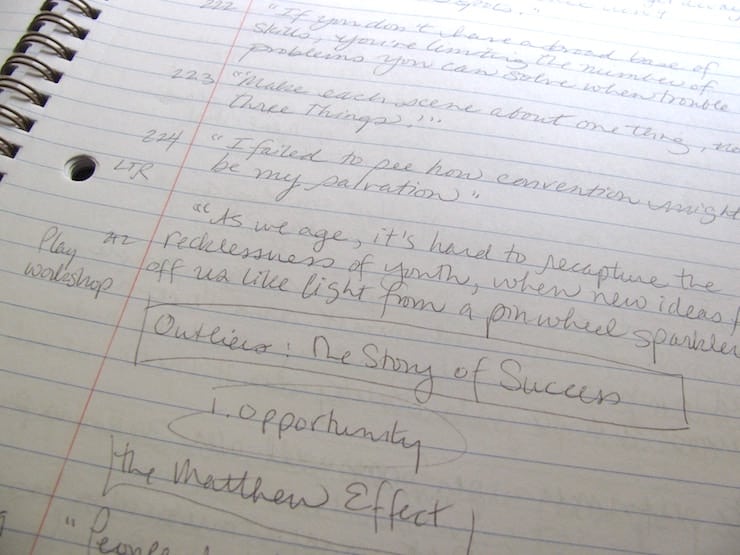 222 "If you don't have a broad base of
skills, you're limiting the number of
problems you can solve when trouble
223 "Make each scene about one thing, no
three things."
224 "I failed to see how convention might
LTR be my salvation"
"As we age, it's hard to recapture the
Play recklessness of youth, when new ideas f
workshop off us like light from a pinwheel sparkler
Outliers: The Story of Success
1. Opportunity
the Matthew Effect
"People